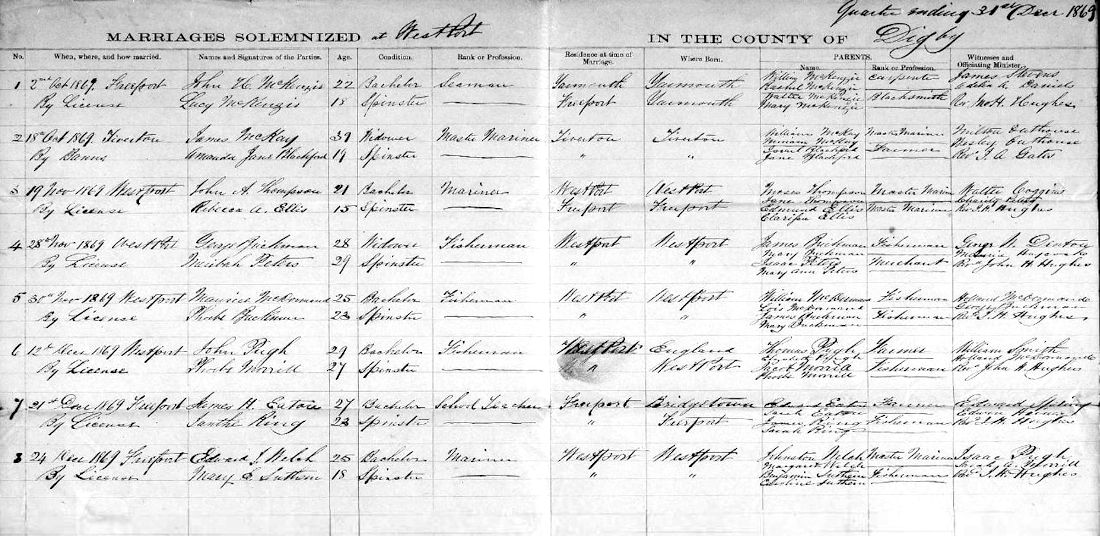 Quarter ending 31st Decr 1869
MARRIAGES SOLEMNIZED at Westport IN THE COUNTY OF Digby
No. When, where, and how married. Names and Signatures of the Parties. Age. Condition. Rank or Profession. Residence at time of Marriage. Where Born. PARENTS. Name. Rank or Profession. Witnesses and Officiating Minister.
1 2nd Oct 1869 Freeport John H. McKenzie 22 Bachelor Seaman Yarmouth Yarmouth William McKenzie Carpenter James Stevens
By License Lucy McKenzie 18 Spinster Freeport Yarmouth Walter McKenzie Blacksmith
Mary McKenzie Hughes
2 18th Oct 1869 Tiverton James McKay 39 Widower Master Mariner Tiverton Tiverton William McKay Master Mariner Milton Outhouse
McKay Wesley Outhouse
By Banns Amanda Jane Blackford 19 Spinster " " Blackford Farmer
Jane Blackford Revd J. A. Gates
3 19 Nov 1869 Westport John A. Thompson 21 Bachelor Mariner Westport Westport Moses Thompson Master Mariner Walter Coggins
Jane Thompson Charity
By License Rebecca A. Ellis 15 Spinster Freeport Freeport Edmund Ellis Master Mariner Revd J. H. Hughes
Ellis
4 28th Nov 1869 Westport George Buckman 28 Widower Fisherman Westport Westport James Buckman Fisherman George Denton
Mary Buckman
By License Peters 29 Spinster " " Isaac Peters Merchant Revd John H Hughes
Mary Ann Peters
5 30th Nov 1869 Westport Maurice McDormand 25 Bachelor Fisherman Westport Westport William McDormand Fisherman Holland McDormand
Lois McDormand
By License Phoebe Buckman 23 Spinster " " James Buckman Fisherman Revd J. H. Hughes
Mary Buckman
6 12th Dec 1869 Westport John Pugh 29 Bachelor Fisherman Westport England Thomas Pugh Farmer William Smith
Pugh Holland McDormand
By License Phoebe Morrill 27 Spinster " Westport Jacob Morrill Fisherman Revd John H. Hughes
Morrill
7 21st Dec 1869 Freeport H. Eaton 27 Bachelor School Teacher Freeport Bridgetown Edward Eaton Farmer Edward
Sarah Eaton Edwin
By License Ianthe Ring 23 Spinster " Freeport Ring Fisherman Revd J. H. Hughes
Sarah Ring
8 24 Dec 1869 Freeport Edward J. Welch 25 Bachelor Mariner Westport Westport Johnston Welch Master Mariner Isaac Pugh
Margaret Welch Morrill
By License Mary E. Suthern 18 Spinster " " Benjamin Suthern Fisherman Revd J. H. Hughes
Caroline Suthern